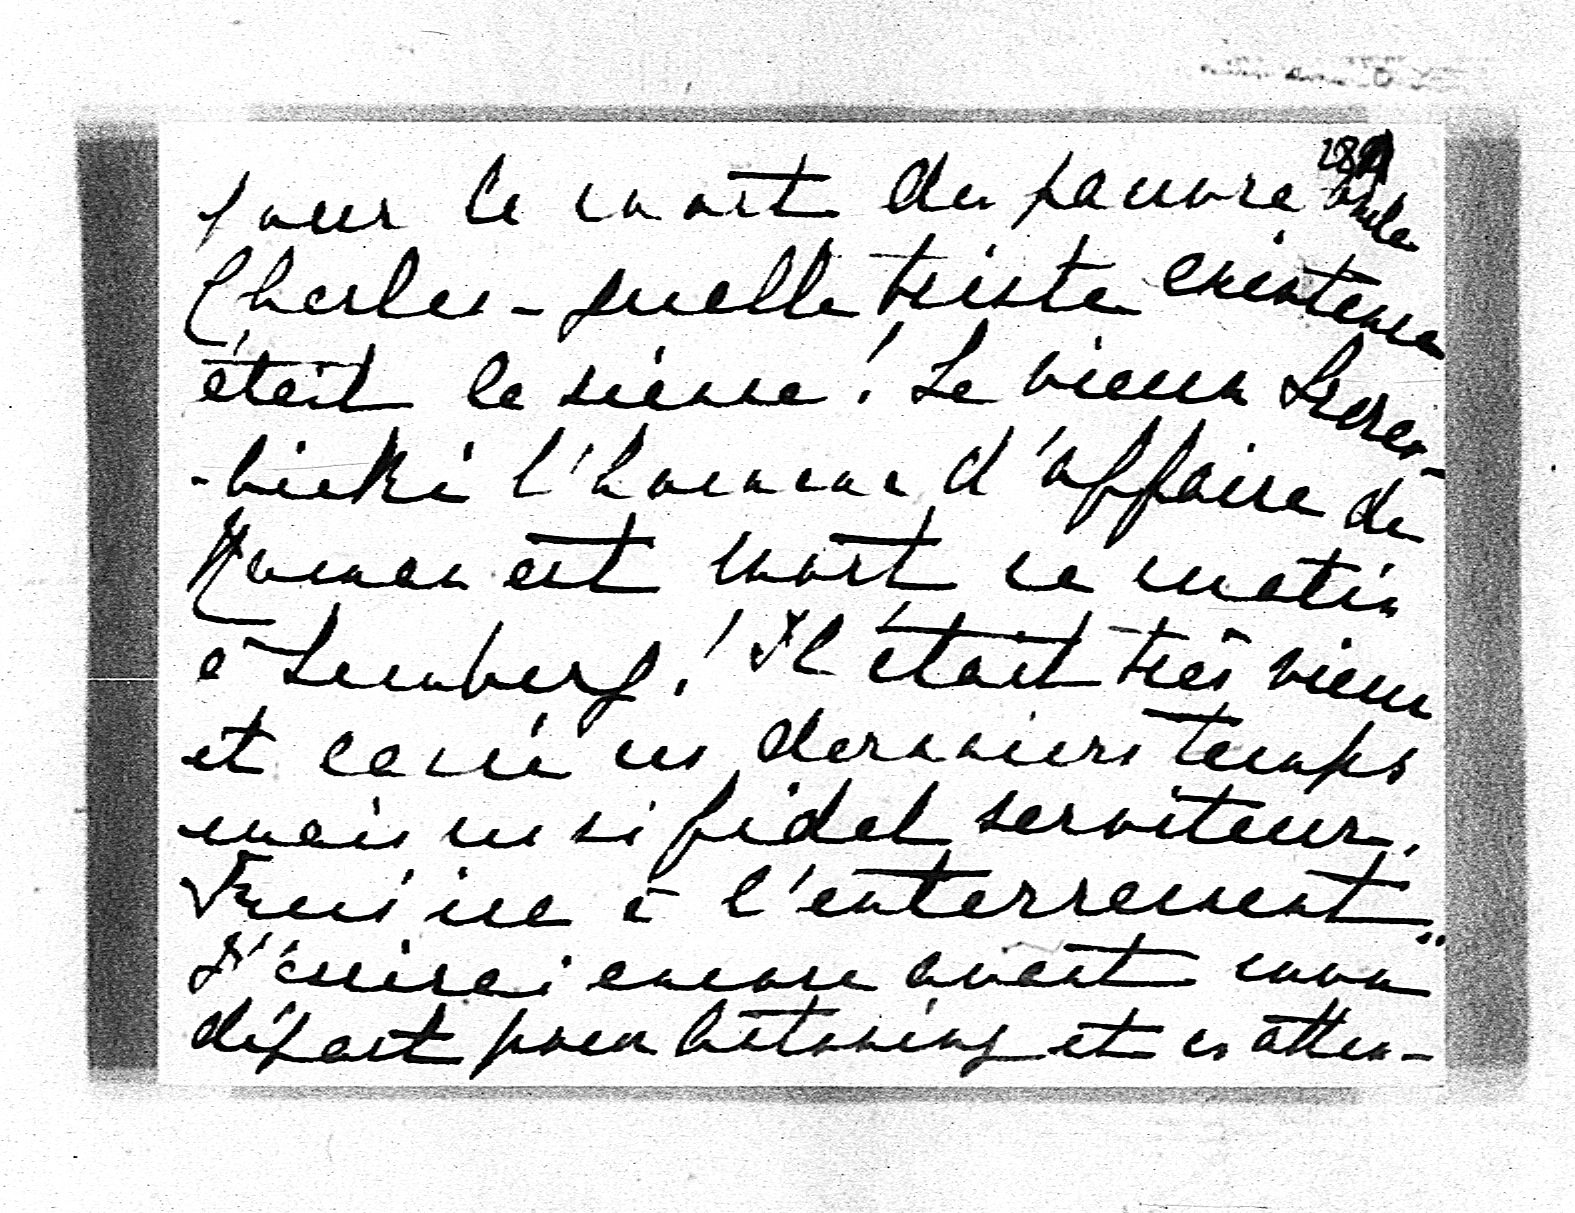 pour la mort du pauvre oncle
Charles - quelle triste existence
était la sienne! Le vieux
-bicki l'homme d'affaire de
Roman est mort ce matin
à Lemberg! Il était très vieux
et cassé ces derniers temps
mais un si fidel serviteur.
J'ai à l'enterrement.
J'écrirai encore avant mon
départ pour et en atten-